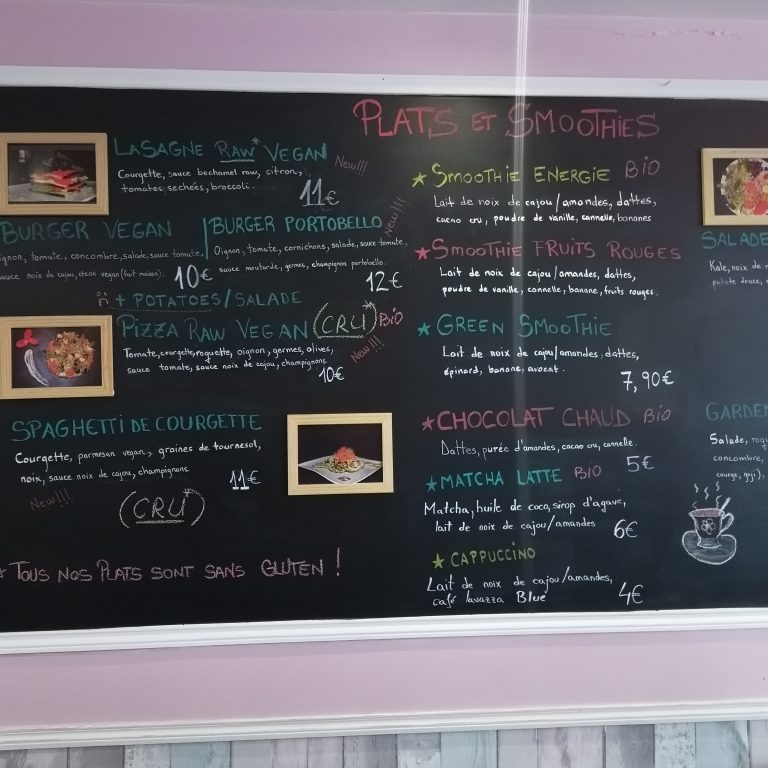 PLATS ET SMOOTHIES
LASAGNE RAW* VEGAN
New!!!
Courgette, sauce bechamel raw, citron,
tomates sechées, broccoli.
11€
BURGER VEGAN
ignon, tomate, concombre, salade, sauce tomate,
sauce noix de cajou, steak vegan (fait maison).
10€
BURGER PORTOBELLO
New!!!
Oignon, tomate, cornichons, salade, sauce tomate,
sauce moutarde, germes, champignon portobello.
12€
+ POTATOES/SALADE
PIZZA RAW VEGAN (CRU)* BIO
Tomate, courgette, roquette, oignon, germes, olives,
sauce tomate, sauce noix de cajou, champignons.
New!!!
10€
SPAGHETTI DE COURGETTE
Courgette, parmesan vegan, graines de tournesol,
noix, sauce noix de cajou, champignons.
11€
New!!!
(CRU)
* TOUS NOS PLATS SONT SANS GLUTEN !
★ SMOOTHIE ENERGIE BIO
Lait de noix de cajou/amandes, dattes,
cacao cru, poudre de vanille, cannelle, bananes
★ SMOOTHIE FRUITS ROUGES
Lait de noix de cajou/amandes, dattes,
poudre de vanille, cannelle, banane, fruits rouges.
★ GREEN SMOOTHIE
Lait de noix de cajou/amandes, dattes,
épinard, banane, avocat.
7,90€
★ CHOCOLAT CHAUD BIO
Dattes, purée d'amandes, cacao cru, cannelle.
5€
★ MATCHA LATTE BIO
Matcha, huile de coco, sirop d'agave,
lait de noix de cajou/amandes
6€
★ CAPPUCCINO
Lait de noix de cajou/amandes,
café lavazza Blue
4€
SALADE
Kale, noix de
patate douce,
GARDEN
Salade, roq
concombre,
courge, goji),